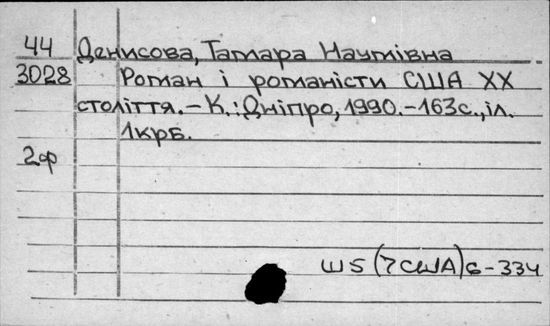 44 Денисова, Тамара Наумівна
3028 Роман і романісти США XX
століття. – К.: Дніпро, 1990. – 163с., іл.
1крб.
2ф
Ш5(7США)6-334